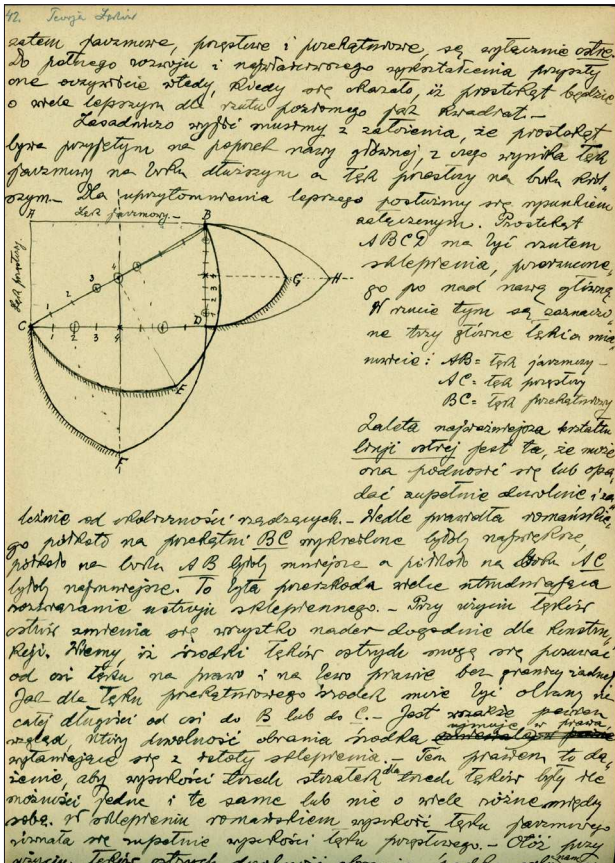 42. Teorja Łęków
zatem jarzmowe, przęsłowe i przekątniowe, są wyłącznie ostre.
Do pełnego rozwoju i najwłaściwszego wykształcenia przyszły
one oczywiście wtedy, kiedy się okazało, iż prostokąt będzie
o wiele lepszym dla rzutu poziomego jak kwadrat.—
Zasadniczo wyjść musimy z założenia, że prostokąt
bywa przyjętym na poprzek nawy głównej, z czego wynika łęk
jarzmowy na boku dłuższym a łęk przęsłowy na boku krót
szym.— Dla uprzytomnienia lepszego posłużmy się rysunkiem
A Łęk jarzmowy.— B
załączonym. Prostokąt
ABCD ma być rzutem
sklepienia, przerzucone,
go po nad nawą główną.
W rzucie tym są zaznaczo
ne trzy główne łęki a mia,
nowicie: AB= łęk jarzmowy—
AC= łęk przęsłowy
BC= łęk przekątniowy
Łęk przęsłowy
1 2 3 4
G H
C 1 2 3 4 D
E
F
Zaleta najważniejsza kształtu
linji ostrej jest ta, że może
ona podnosić się lub opa,
dać zupełnie dowolnie i za
leżnie od okoliczności rządzących.— Wedle prawidła romańskie,
go półkoło na przekątni BC wykreślone byłoby największe,
półkoło na boku AB byłoby mniejsze a półkoło na boku AC
byłoby najmniejsze. To była przeszkoda wielce utrudniająca
rozwiązanie ustroju sklepiennego.— Przy użyciu łęków
ostrych zmienia się wszystko nader dogodnie dla konstru,
kcji. Wiemy, iż środki łęków ostrych mogą się posuwać
od osi łęku na prawo i na lewo prawie bez granicy żadnej
Jak dla łęku przekątniowego środek może być obrany na
całej długości od osi do B lub do C.— Jest wszakże pewien
wzgląd, który dowolność obrania środka ujmuje w prawa,
wyłaniające się z istoty sklepienia.— Tem prawem to dą,
żenie, aby wysokości trzech strzałek dla trzech łęków były ile
możności jedne i te same lub nie o wiele różne między
sobą. W sklepieniu romańskiem wysokość łęku jarzmowego
równała się zupełnie wysokości łęku przęsłowego.— Otóż przy
użyciu łęków ostrych